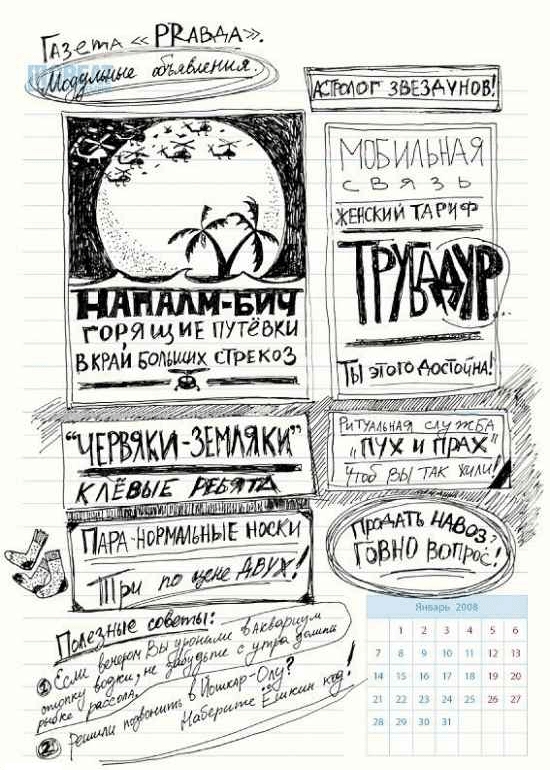 Газета « PRавда».
Модульные объявления.
АСТРОЛОГ ЗВЕЗДУНОВ!
НАПАЛМ-БИЧ
ГОРЯЩИЕ ПУТЁВКИ
В КРАЙ БОЛЬШИХ СТРЕКОЗ
МОБИЛЬНАЯ
СВЯЗЬ
ЖЕНСКИЙ ТАРИФ
ТРУБАДУР...
ТЫ этого достойна!
"ЧЕРВЯКИ-ЗЕМЛЯКИ"
КЛЁВЫЕ РЕБЯТА
РИТУАЛЬНАЯ СЛУЖБА
„ПУХ И ПРАХ"
Чтоб вы так жили!
ПАРА-НОРМАЛЬНЫЕ НОСКИ
Три по цене ДВУХ!
ПРОДАТЬ НАВОЗ?
ГОВНО ВОПРОС!
Полезные советы:
1 Если вечером Вы уронили в Аквариум
стопку водки, не забудьте с утра долить
рыбке рассола.
2 Решили позвонить в Йошкар-Олу?
Наберите Ёшкин код!
Январь 2008
1 2 3 4 5 6
7 8 9 10 11 12 13
14 15 16 17 18 19 20
21 22 23 24 25 26 27
28 29 30 31